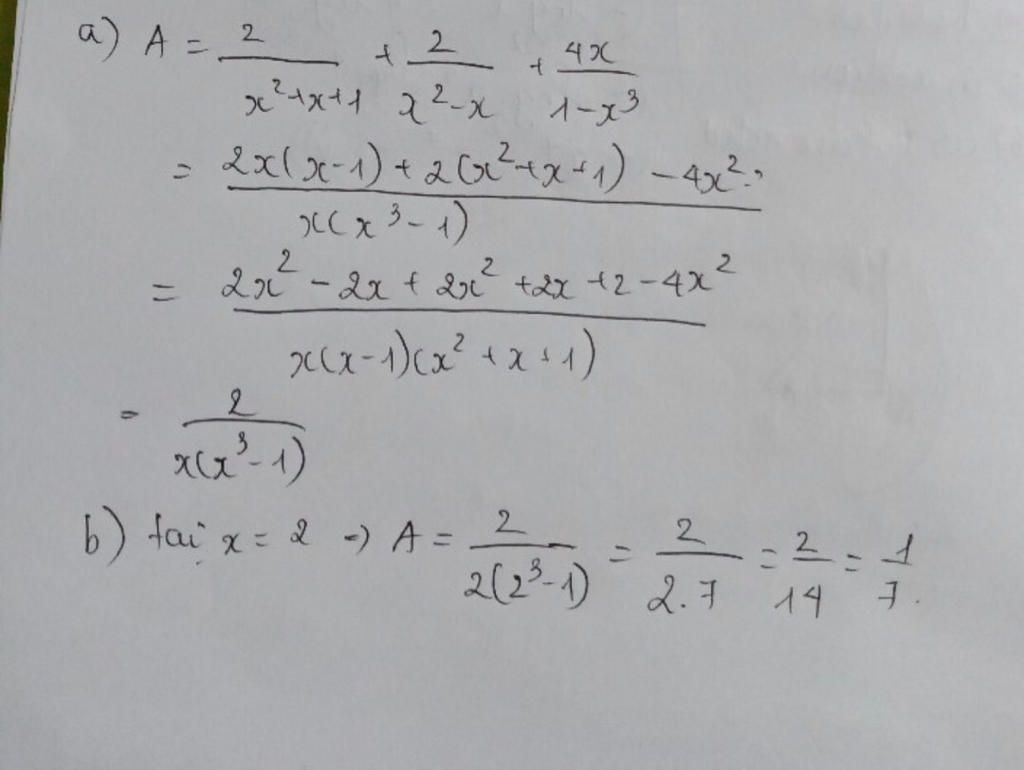 a) A = \frac{2}{x^2+x+1} + \frac{2}{x^2-x} + \frac{4x}{1-x^3}
= \frac{2x(x-1)+2(x^2+x+1)-4x^2}{x(x^3-1)}
= \frac{2x^2-2x+2x^2+2x+2-4x^2}{x(x-1)(x^2+x+1)}
= \frac{2}{x(x^3-1)}
b) tại x = 2 → A = \frac{2}{2(2^3-1)} = \frac{2}{2.7} = \frac{2}{14} = \frac{1}{7}.